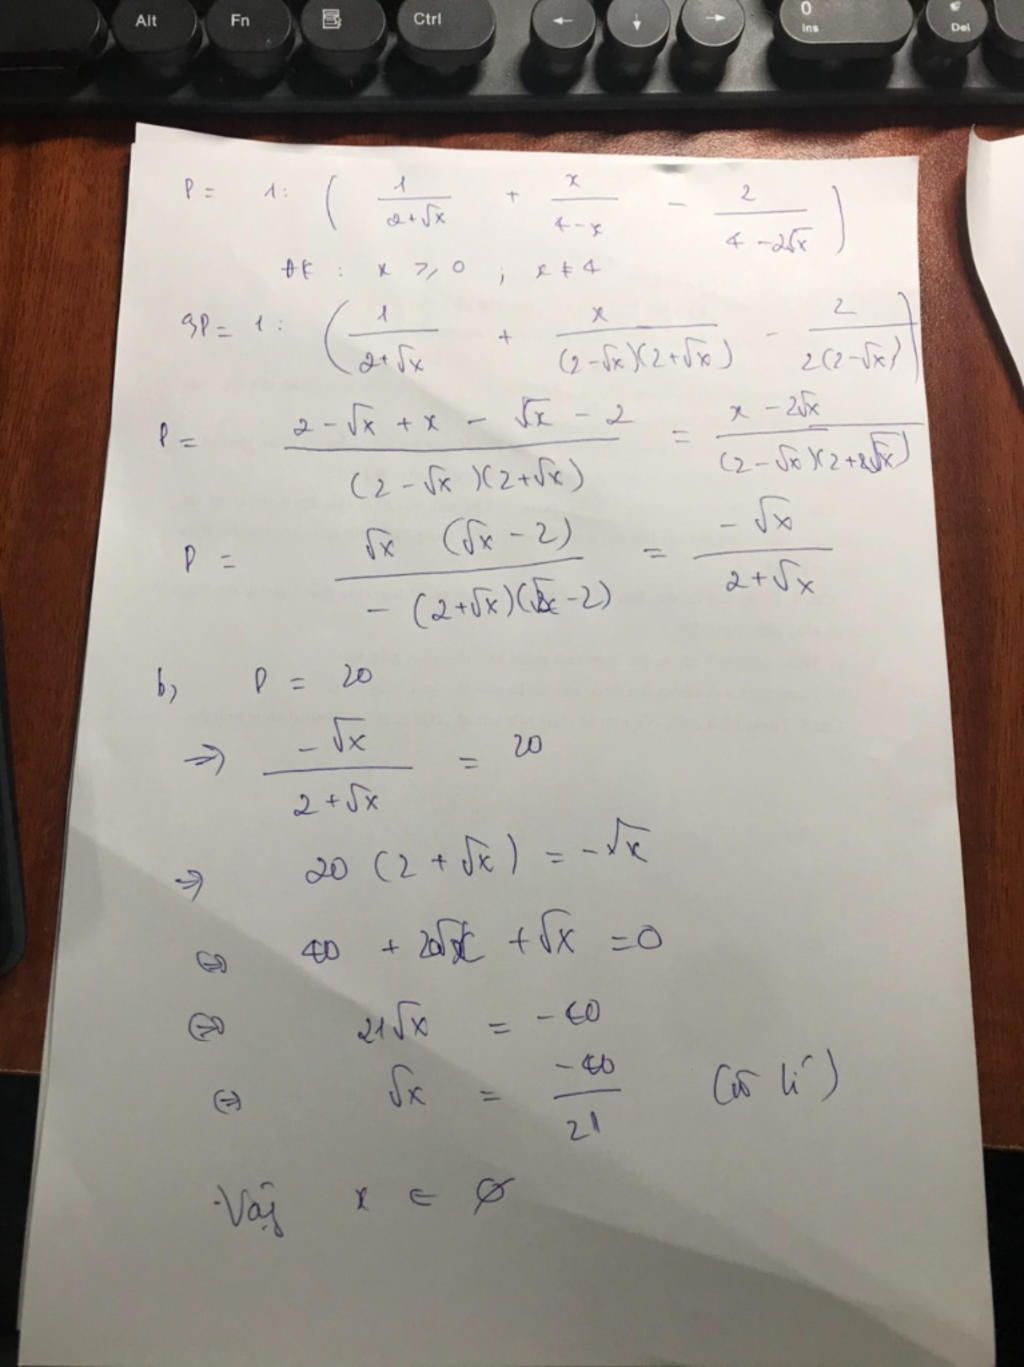 Alt Fn Ctrl ← ↓ → 0 Ins Del
P = 1 : ( 1/(2+√x) + x/(4-x) - 2/(4-2√x) )
ĐK : x ≥ 0 ; x ≠ 4
P = 1 : ( 1/(2+√x) + x/((2-√x)(2+√x)) - 2/(2(2-√x)) )
P = (2-√x + x - √x - 2)/((2-√x)(2+√x)) = (x - 2√x)/((2-√x)(2+√x))
P = √x (√x - 2)/(-(2+√x)(√x-2)) = -√x/(2+√x)
b, P = 20
=> -√x/(2+√x) = 20
=> 20 (2 + √x) = -√x
⇔ 40 + 20√x + √x = 0
⇔ 21√x = -40
⇔ √x = -40/21 (vô lí)
Vậy x ∈ ∅